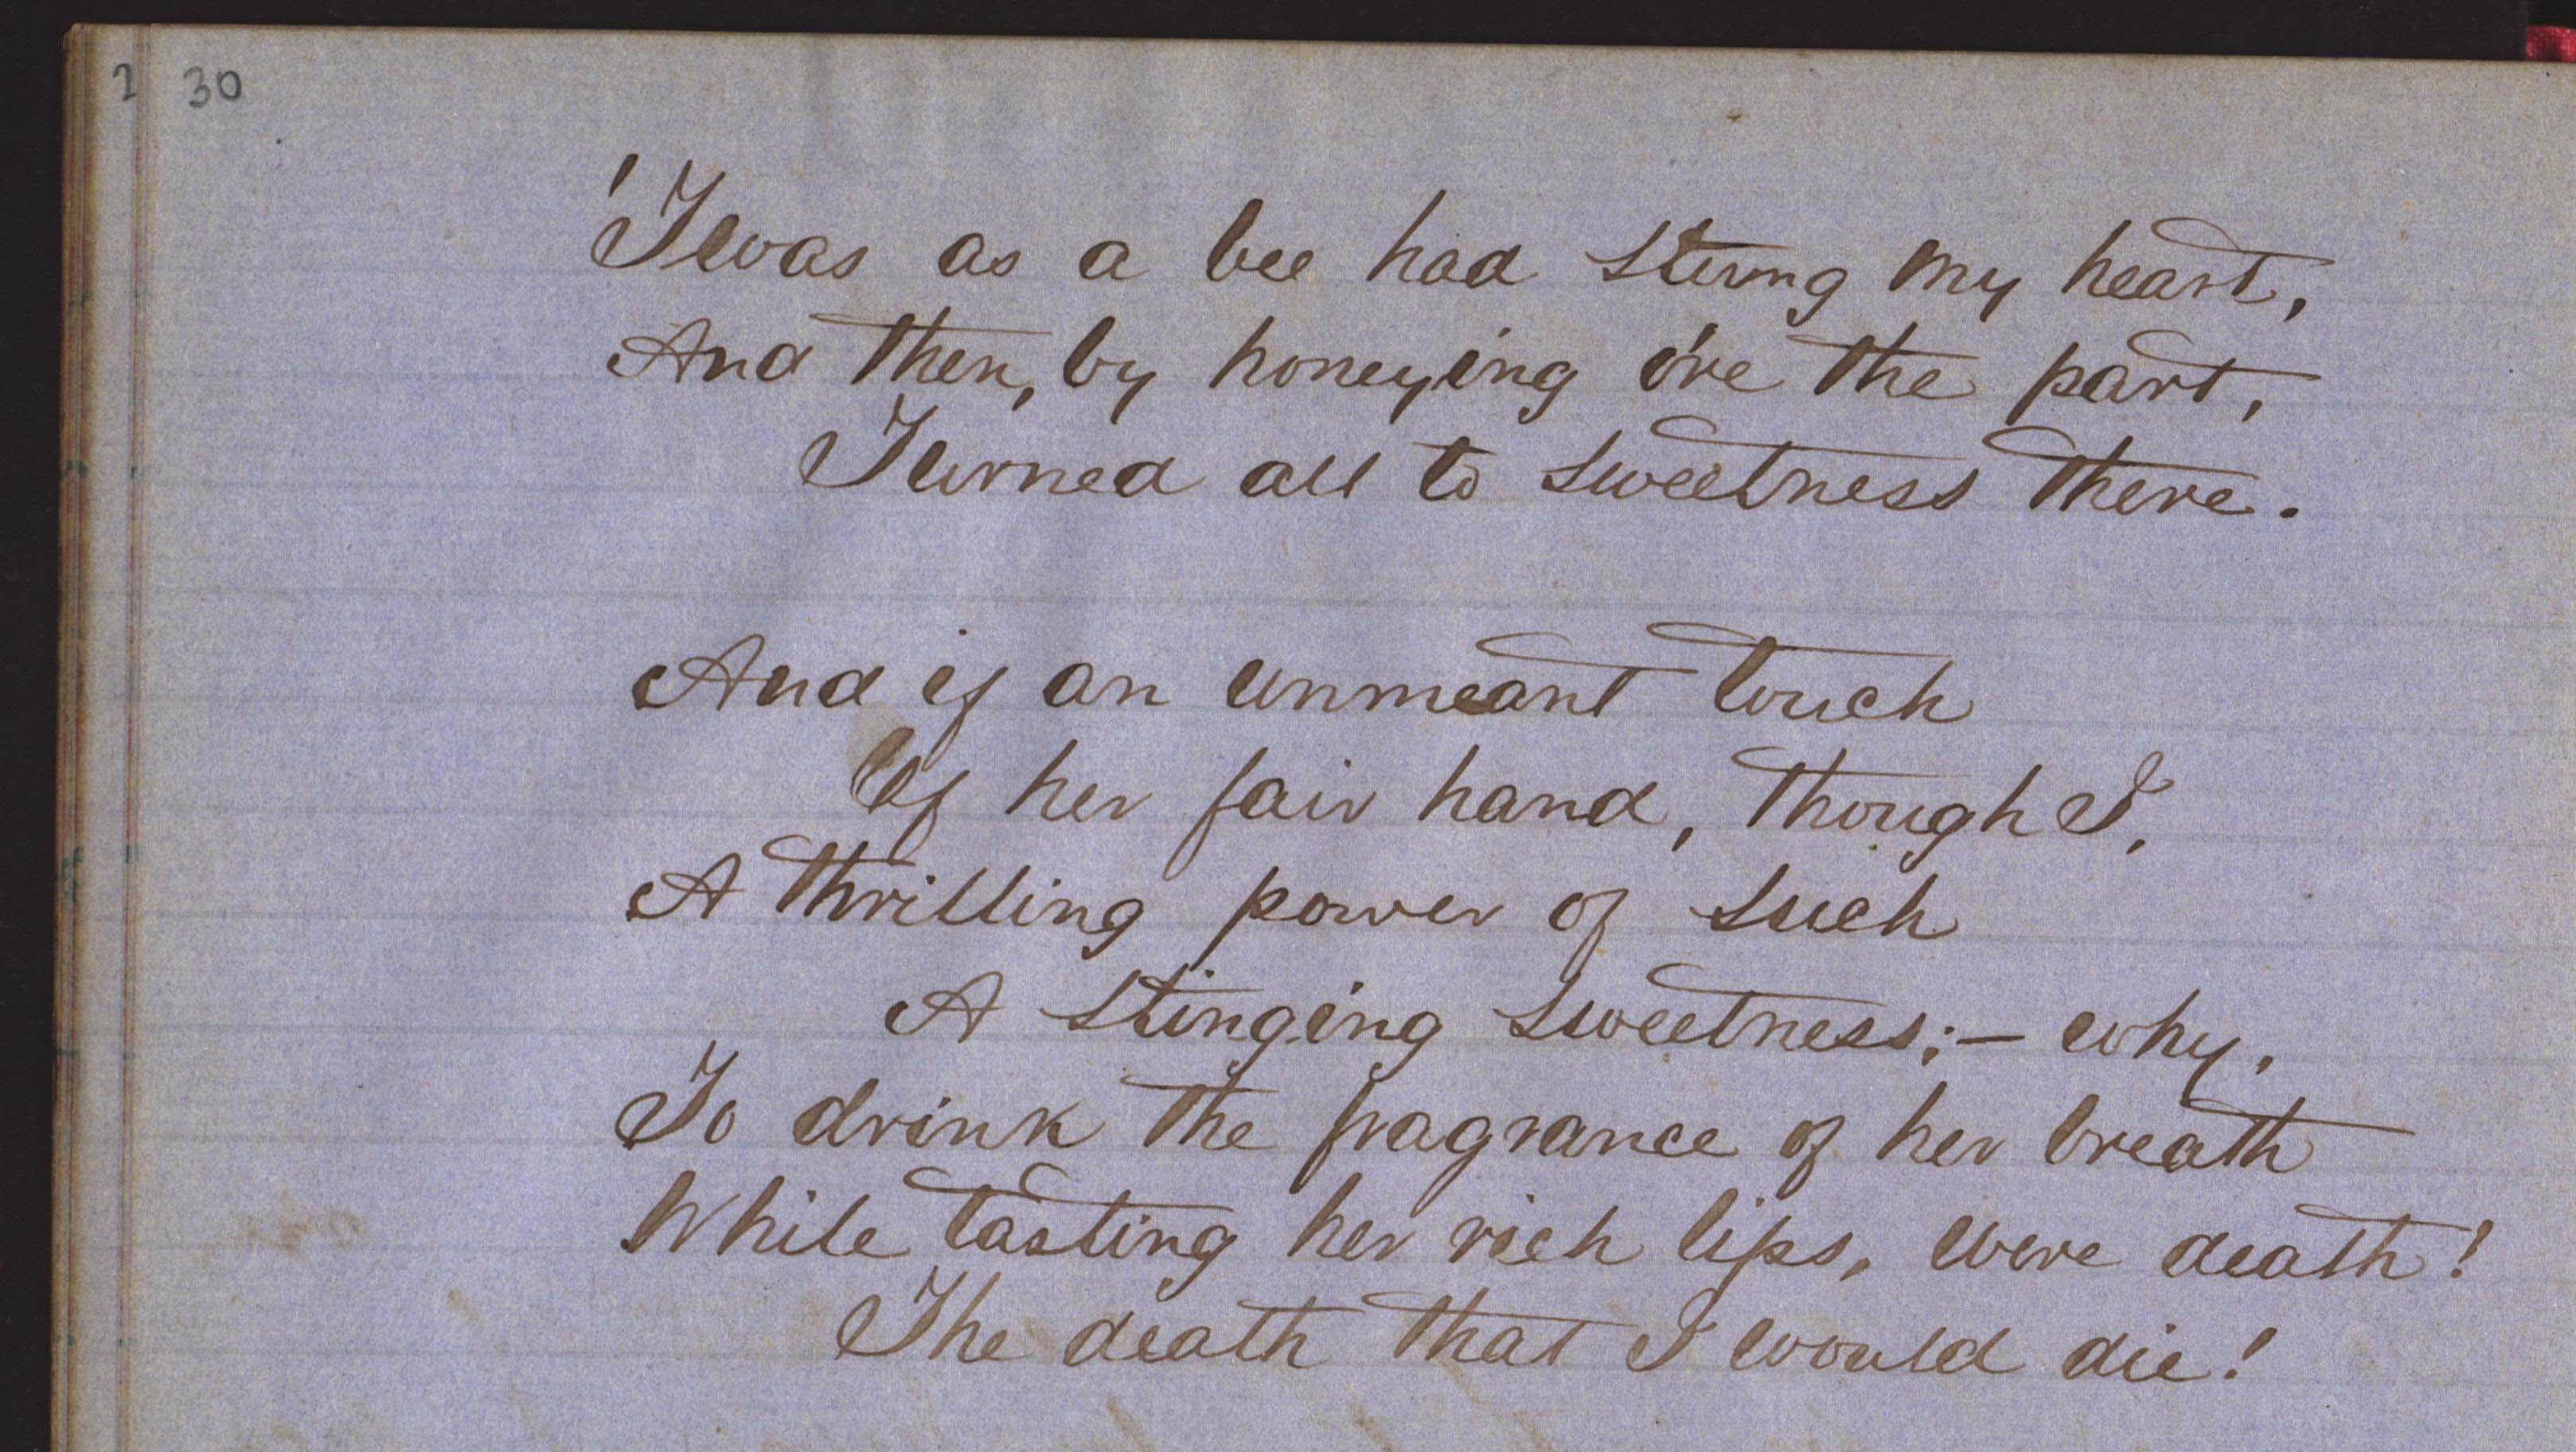 2 30
'Twas as a bee had stung my heart,
And then, by honeying o're the part,
Turned all to sweetness there.
And if an unmeant touch
Of her fair hand, though I,
A thrilling power of such
A stinging sweetness; — why,
To drink the fragrance of her breath
While tasting her rich lips, were death!
The death that I would die!